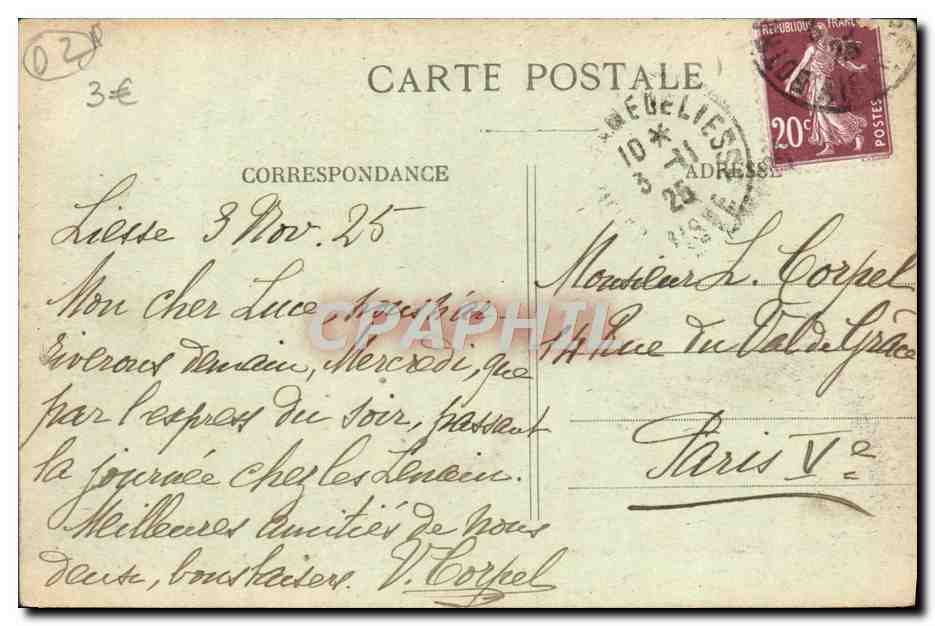 02
3€
CARTE POSTALE
RÉPUBLIQUE FRANC
20c
POSTES
CORRESPONDANCE
ADRESSE
10 *
3 - 11
25
Liesse 3 Nov. 25
Mon cher Luce, nous n'ar-
riverons demain, Mercredi, que
par l'express du soir, passant
la journée chez les Lenain.
Meilleures amitiés de nous
deux, bons baisers. V. Corpel
Monsieur L. Corpel
14 Rue du Val de Grâce
Paris Ve
CPAPHIL